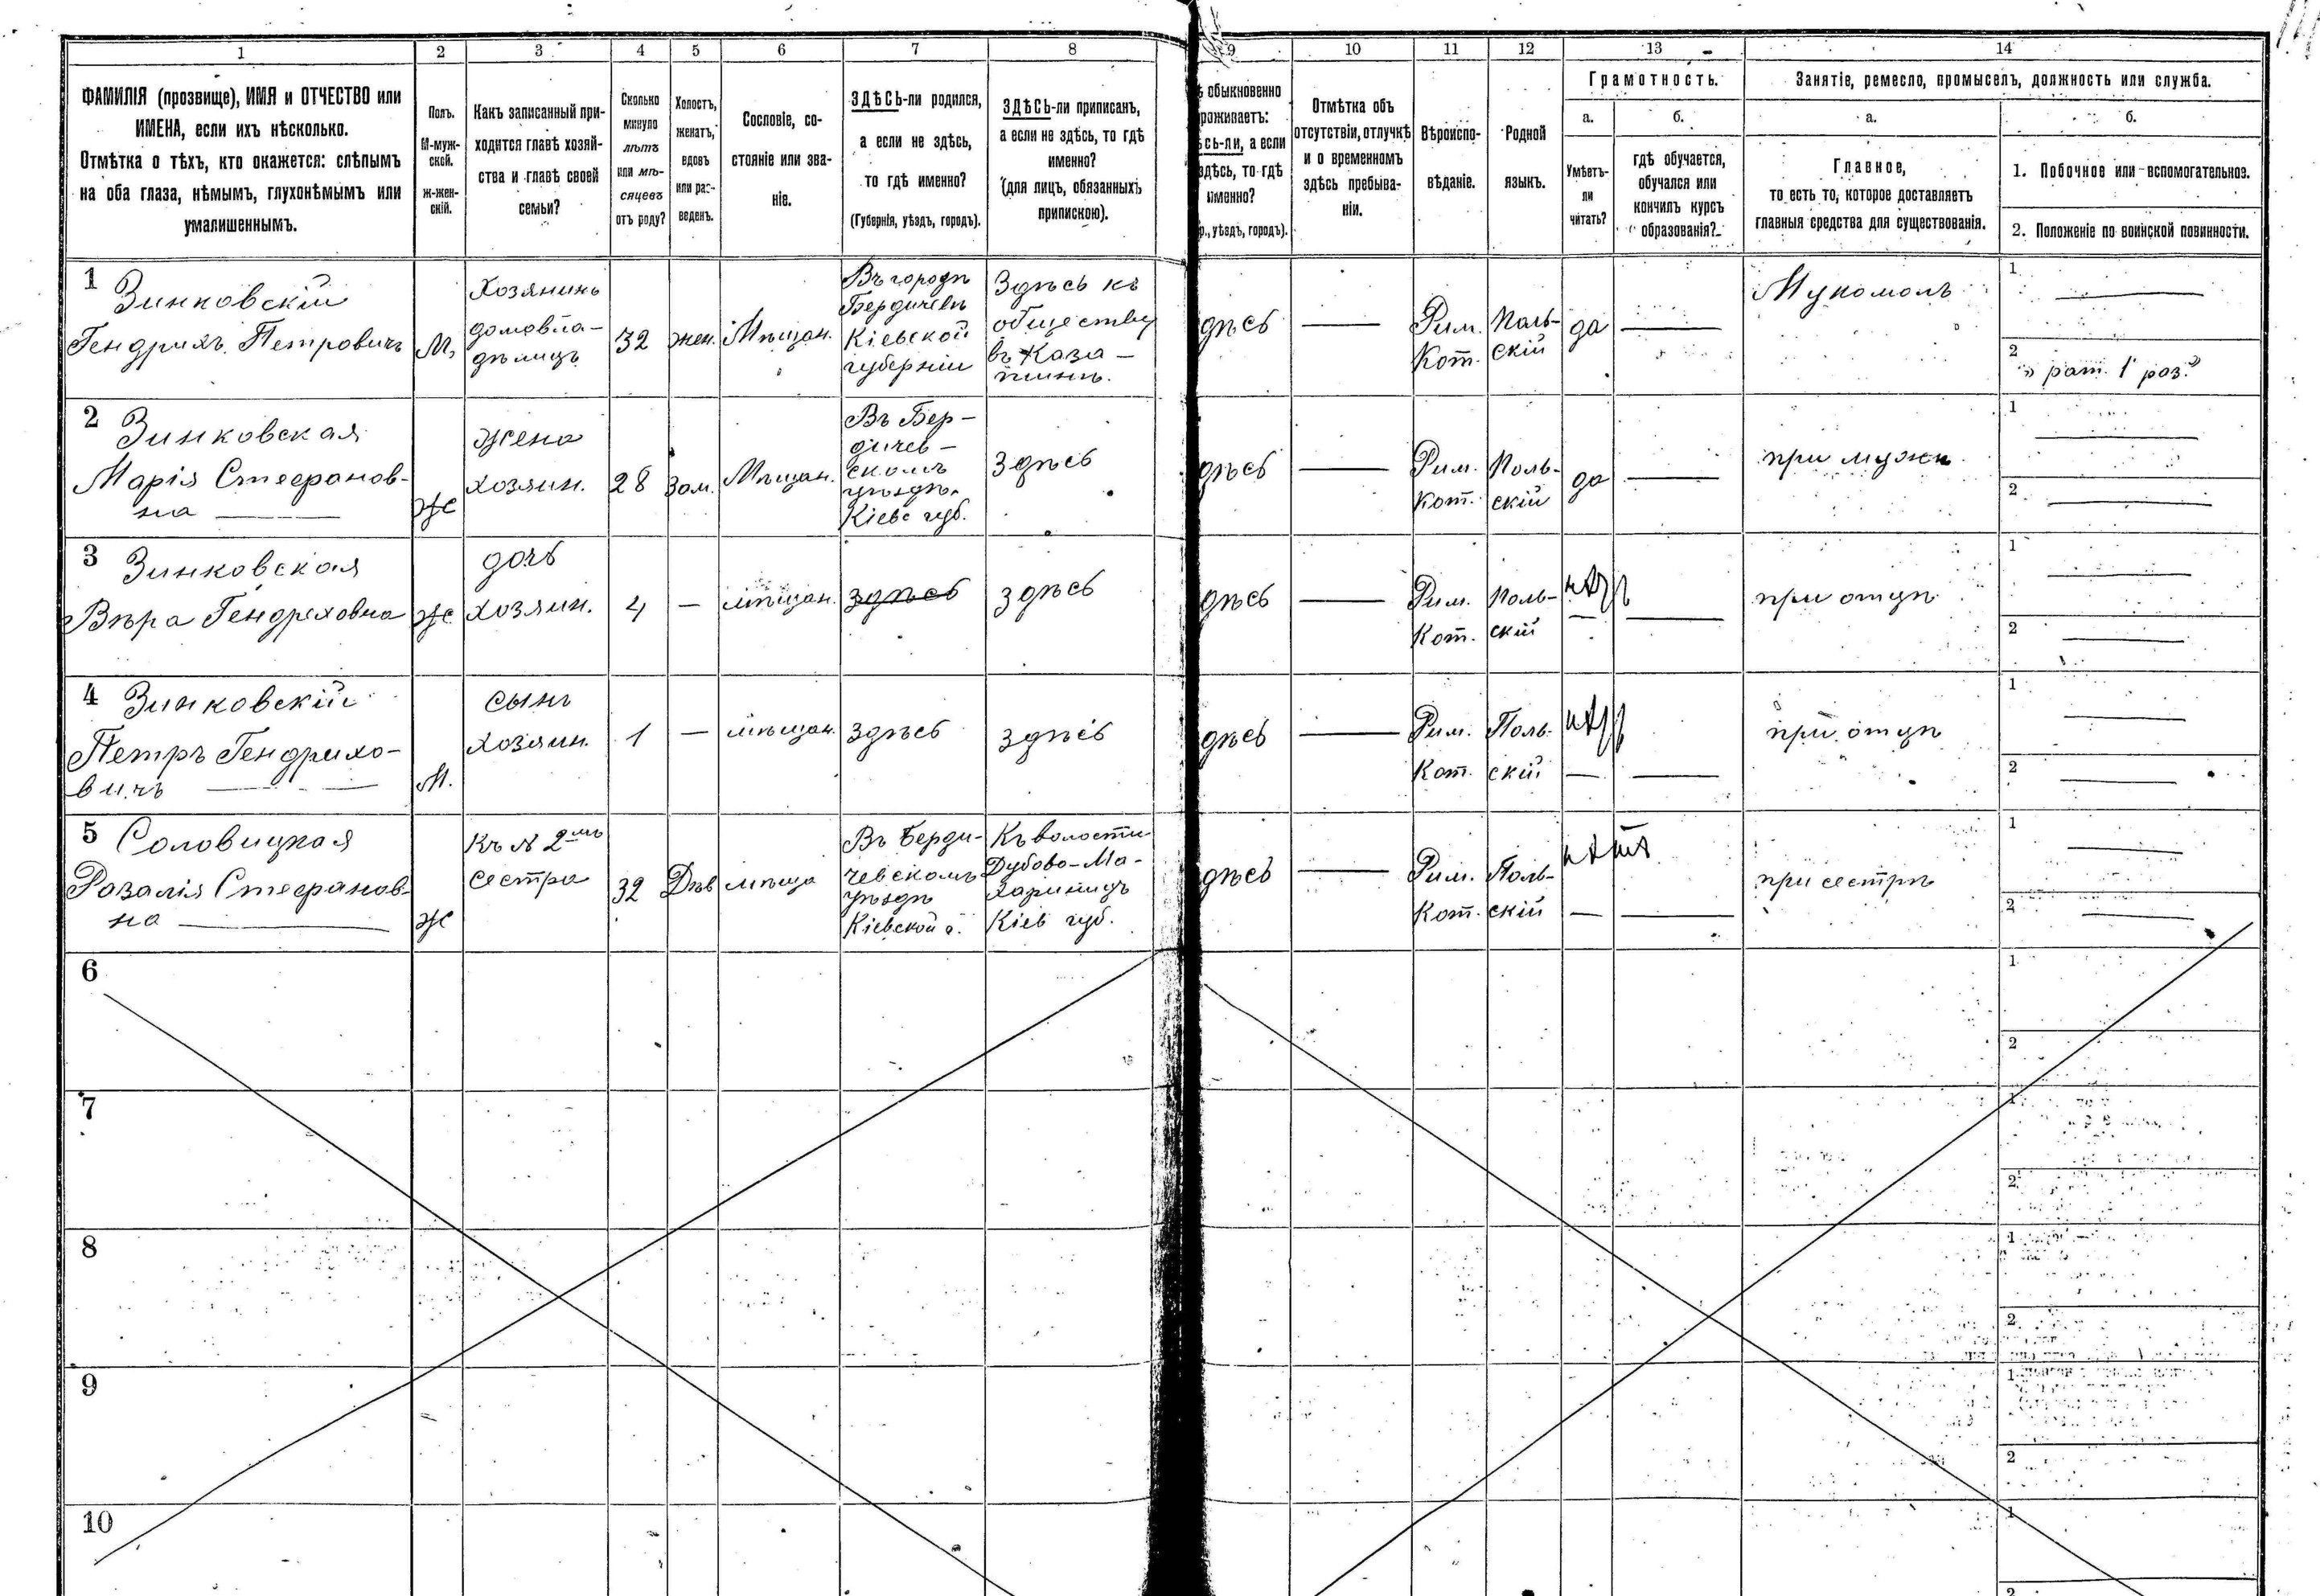 1
2
3
4
5
6
7
8
9
10
11
12
13
14
ФАМИЛІЯ (прозвище), ИМЯ и ОТЧЕСТВО или
ИМЕНА, если ихъ нѣсколько.
Отмѣтка о тѣхъ, кто окажется: слѣпымъ
на оба глаза, нѣмымъ, глухонѣмымъ или
умалишеннымъ.
Полъ.
М-муж-
ской.
ж-жен-
скій.
Какъ записанный при-
ходится главѣ хозяй-
ства и главѣ своей
семьи?
Сколько
минуло
лѣтъ
или мѣ-
сяцевъ
отъ роду?
Холостъ,
женатъ,
вдовъ
или раз-
веденъ.
Сословіе, со-
стояніе или зва-
ніе.
ЗДѢСЬ-ли родился,
а если не здѣсь,
то гдѣ именно?
(Губернія, уѣздъ, городъ).
ЗДѢСЬ-ли приписанъ,
а если не здѣсь, то гдѣ
именно?
(для лицъ, обязанныхъ
припискою).
обыкновенно
роживаетъ:
сь-ли, а если
здѣсь, то гдѣ
именно?
р., уѣздъ, городъ).
Отмѣтка объ
отсутствіи, отлучкѣ
и о временномъ
здѣсь пребыва-
ніи.
Вѣроиспо-
вѣданіе.
Родной
языкъ.
Грамотность.
а.
Умѣетъ-
ли
читать?
б.
гдѣ обучается,
обучался или
кончилъ курсъ
образованія?
Занятіе, ремесло, промыселъ, должность или служба.
а.
Главное,
то есть то, которое доставляетъ
главныя средства для существованія.
б.
1. Побочное или вспомогательное.
2. Положеніе по воинской повинности.
1 Зинковскій
Гендрихъ Петровичъ
М.
Хозяинъ
домовла-
дѣлецъ
32
жен.
Мѣщан.
Въ городѣ
Бердичевѣ
Кіевской
губерніи
Здѣсь къ
обществу
въ Каза-
тинѣ.
дѣсь
Рим.
Кат.
Поль-
скій
да
Мукомолъ
1
2
рат. 1 раз.
2 Зинковская
Марія Стефанов-
на
Ж
жена
хозяин.
28
Зам.
Мѣщан.
Въ Бер-
дичев-
скомъ
уѣздѣ
Кіевс губ.
Здѣсь
дѣсь
Рим.
Кат.
Поль-
скій
да
при мужѣ
1
2
3 Зинковская
Вѣра Гендреховна
Ж
дочь
хозяин.
4
мѣщан.
здѣсь
здѣсь
дѣсь
Рим.
Кат.
Поль-
скій
при отцѣ
1
2
4 Зинковскій
Петръ Гендрихо-
вичъ
М.
сынъ
хозяин.
1
мѣщан.
здѣсь
здѣсь
дѣсь
Рим.
Кат.
Поль-
скій
при отцѣ
1
2
5 Соловицкая
Розалія Стефанов-
на
Ж
Къ № 2мъ
сестра
32
Дѣв
мѣща
Въ Берди-
чевскомъ
уѣздѣ
Кіевской г.
Къ волости
Дубово-Ма-
харинцъ
Кіев губ.
дѣсь
Рим.
Кат.
Поль-
скій
при сестрѣ
1
2
6
1
2
7
1
2
8
1
2
9
1
2
10
1
2